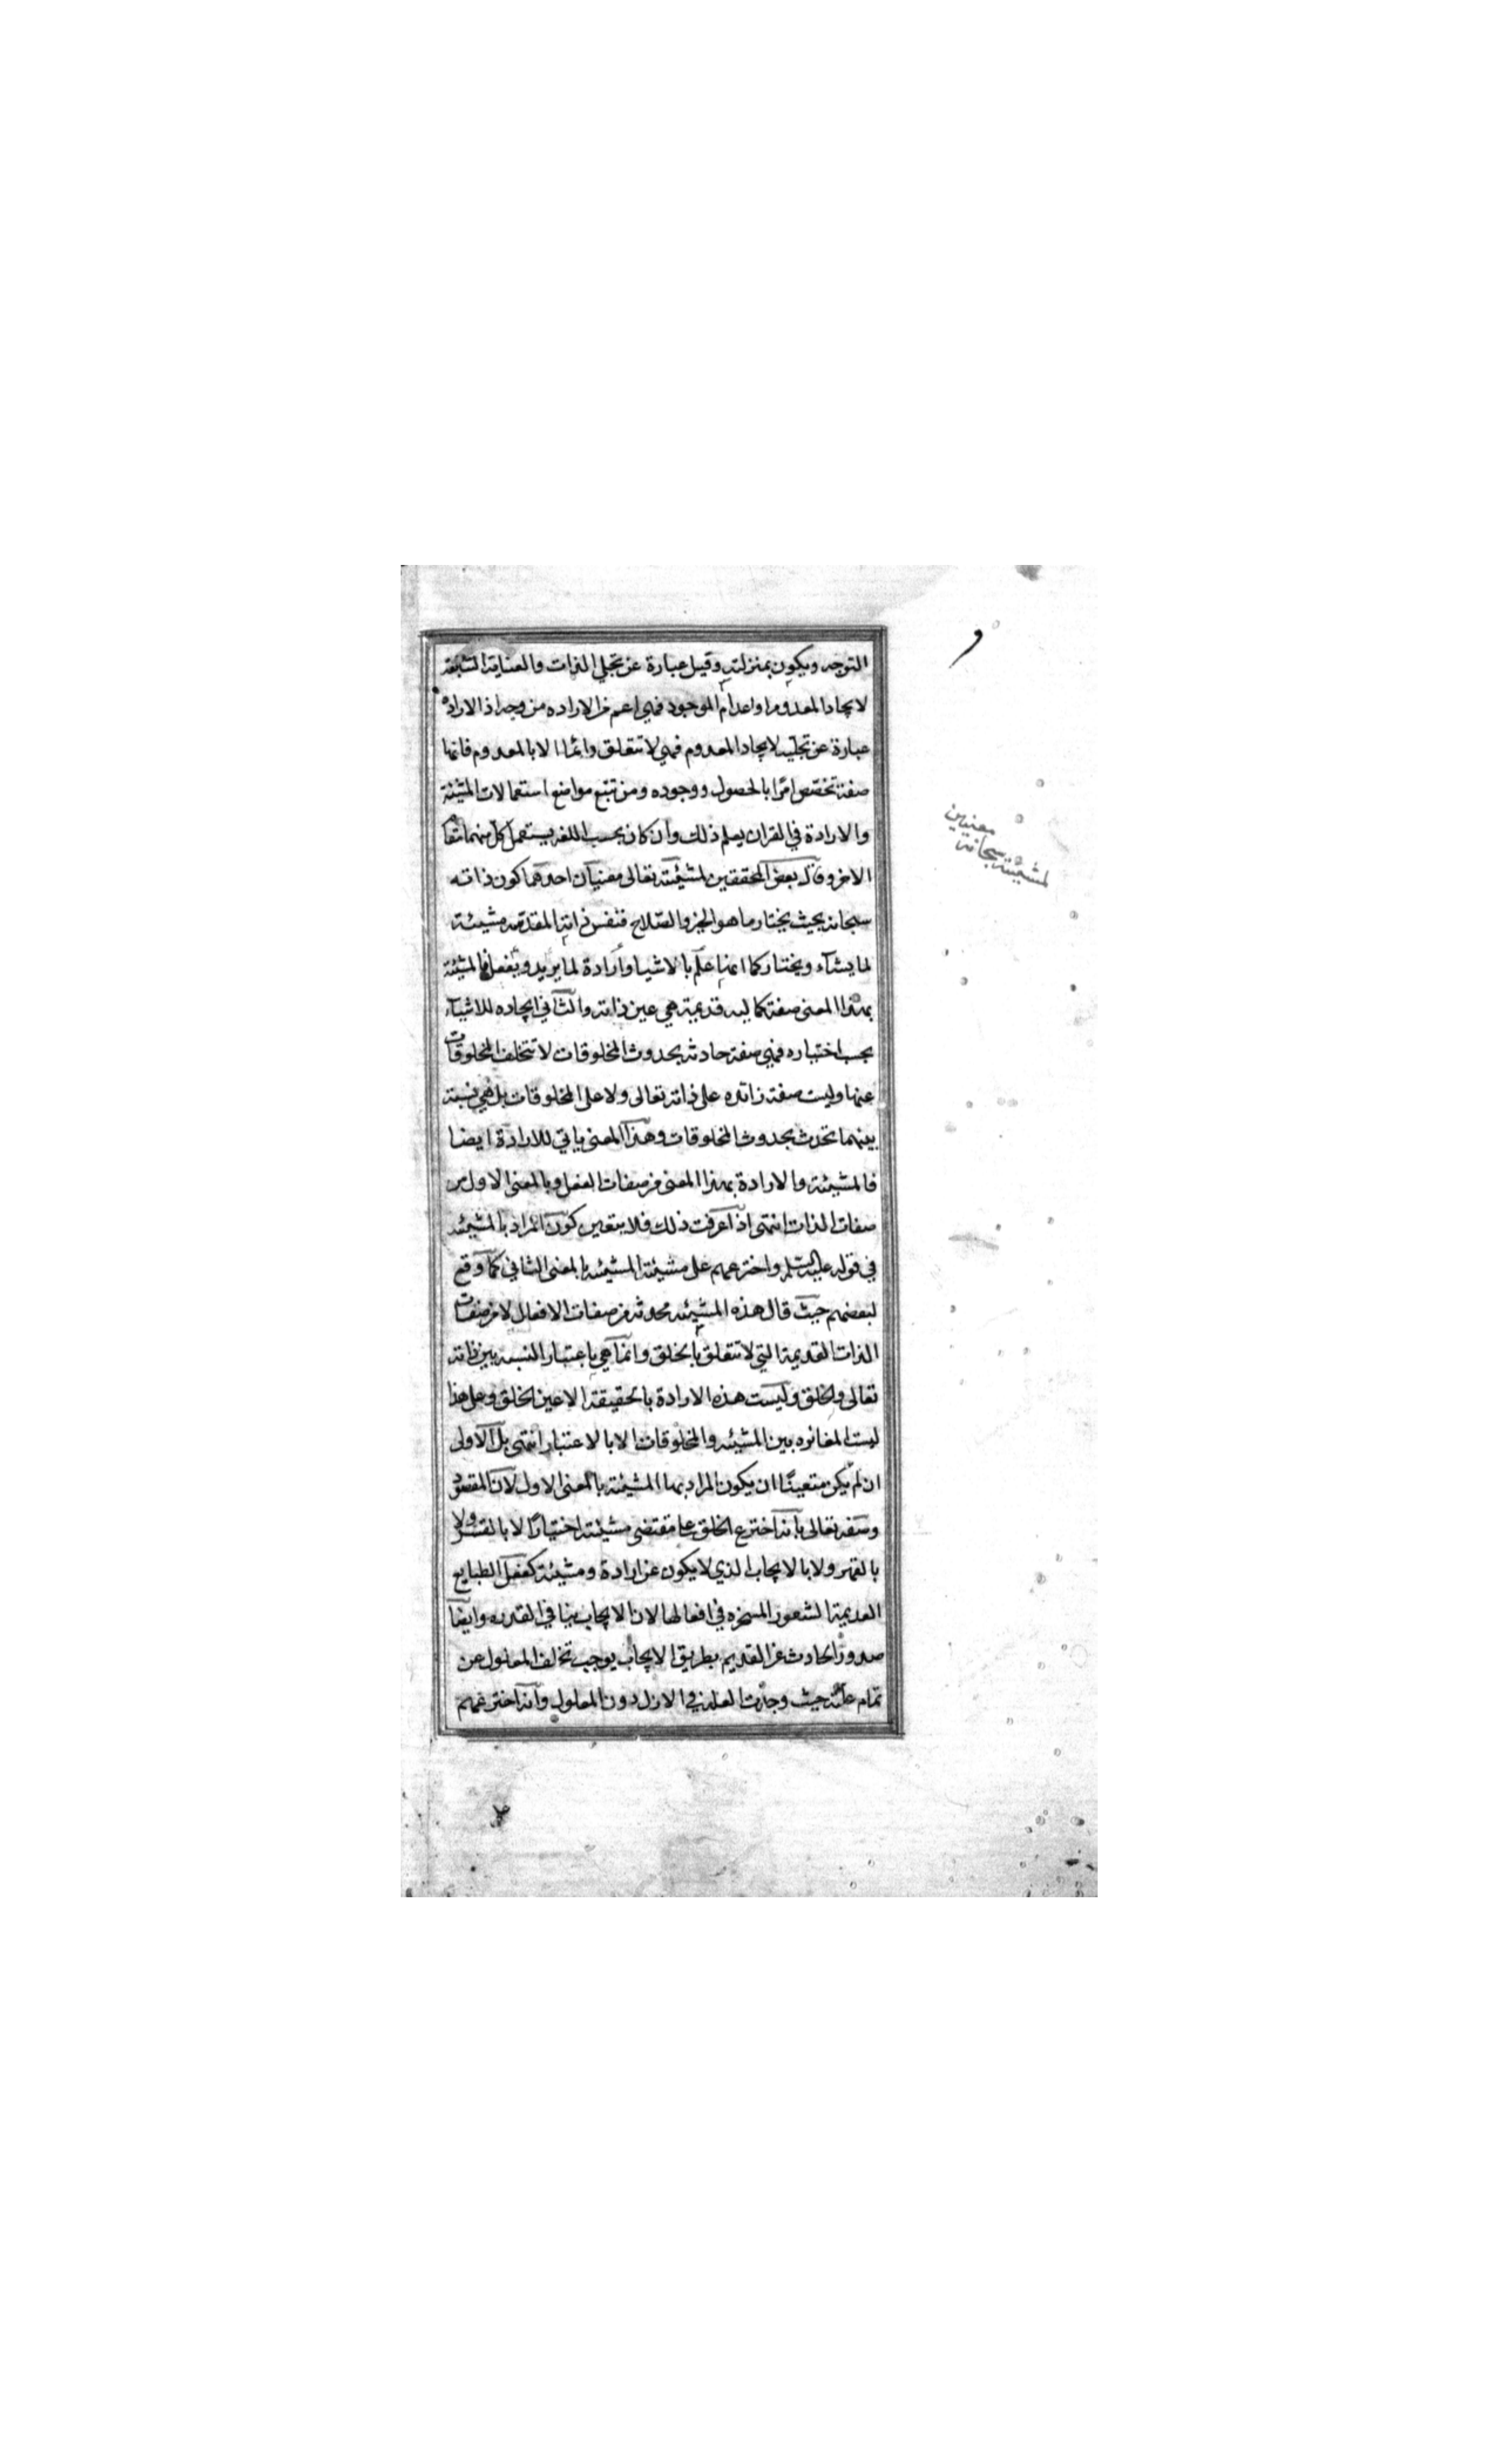 التوجه ويكون بمنزلته وقيل عبارة عن تجلي الذات والعناية السابقة
لايجاد المعدوم او اعدام الموجود فهي اعم من الاراده من وجه اذ الارادة
عبارة عن تجليه لايجاد المعدوم فهي لا تتعلق دائما الا بالمعدوم فانها
صفة تخصّص امرًا بالحصول ووجوده ومن تتبع مواضع استعمالات المشيئة
والارادة في القران يعلم ذلك وان كان بحسب اللغه يستعمل كل منهما مقام
الاخر وقال بعض المحققين لمشيئته تعالى معنيان احدهما كون ذاته
سبحانه بحيث يختار ما هو الخير والصّلاح فنفس ذاته المقدّسه مشيئة
لما يشآء ويختار كما انها علم بالاشيا وارادة لما يريد ويفعل فالمشيئة
بهذا المعنى صفة كماليه قديمة هي عين ذاته والثاني ايجاده للاشيآء
بحسب اختياره فهي صفة حادثه بحدوث المخلوقات لا تتخلف المخلوقات
عنها وليست صفة زائده على ذاته تعالى ولا على المخلوقات بل هي نسبة
بينهما تحدث بحدوث المخلوقات وهذا المعنى ياتي للارادة ايضا
فالمشيئة والارادة بهذا المعنى من صفات الفعل وبالمعنى الاول من
صفات الذات انتهى اذا عرفت ذلك فلا يتعين كون المراد بالمشيئه
في قوله عليه السّلم واخترعهم على مشيئته المشيئه بالمعنى الثاني كما وقع
لبعضهم حيث قال هذه المشيئه محدثه من صفات الافعال لا من صفات
الذات القديمة التي لا تتعلق بالخلق وانما هي باعتبار النسبه بين ذاته
تعالى والخلق وليست هذه الارادة بالحقيقة الا عين الخلق وعلى هذا
ليست المغائره بين المشيئه والمخلوقات الا بالاعتبار انتهى بل الاولى
ان لم يكن متعينًا ان يكون المراد بها المشيئة بالمعنى الاول لان المقصود
وصفه تعالى بانه اخترع الخلق على مقتضى مشيئته اختيارًا لا بالقسر ولا
بالقهر ولا بالايجاب الذي لا يكون عن ارادة ومشيئة كفعل الطبايع
العديمة الشعور المسخره في افعالها لان الايجاب ينافي القدره وايضًا
صدور الحادث عن القديم بطريق الايجاب يوجب تخلف المعلول عن
تمام علته حيث وجدت العلة في الازل دون المعلول وانه اخترعهم
معنيين
لمشيئته سبحانه